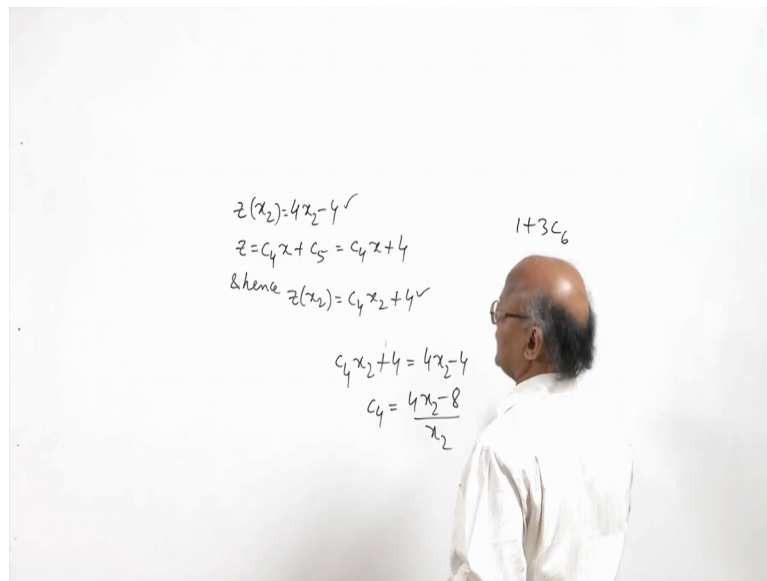 z(x₂)=4x₂-4✓
z=c₄x+c₅=c₄x+4
&hence z(x₂)=c₄x₂+4✓
c₄x₂+4=4x₂-4
c₄=(4x₂-8)/x₂
1+3c₆